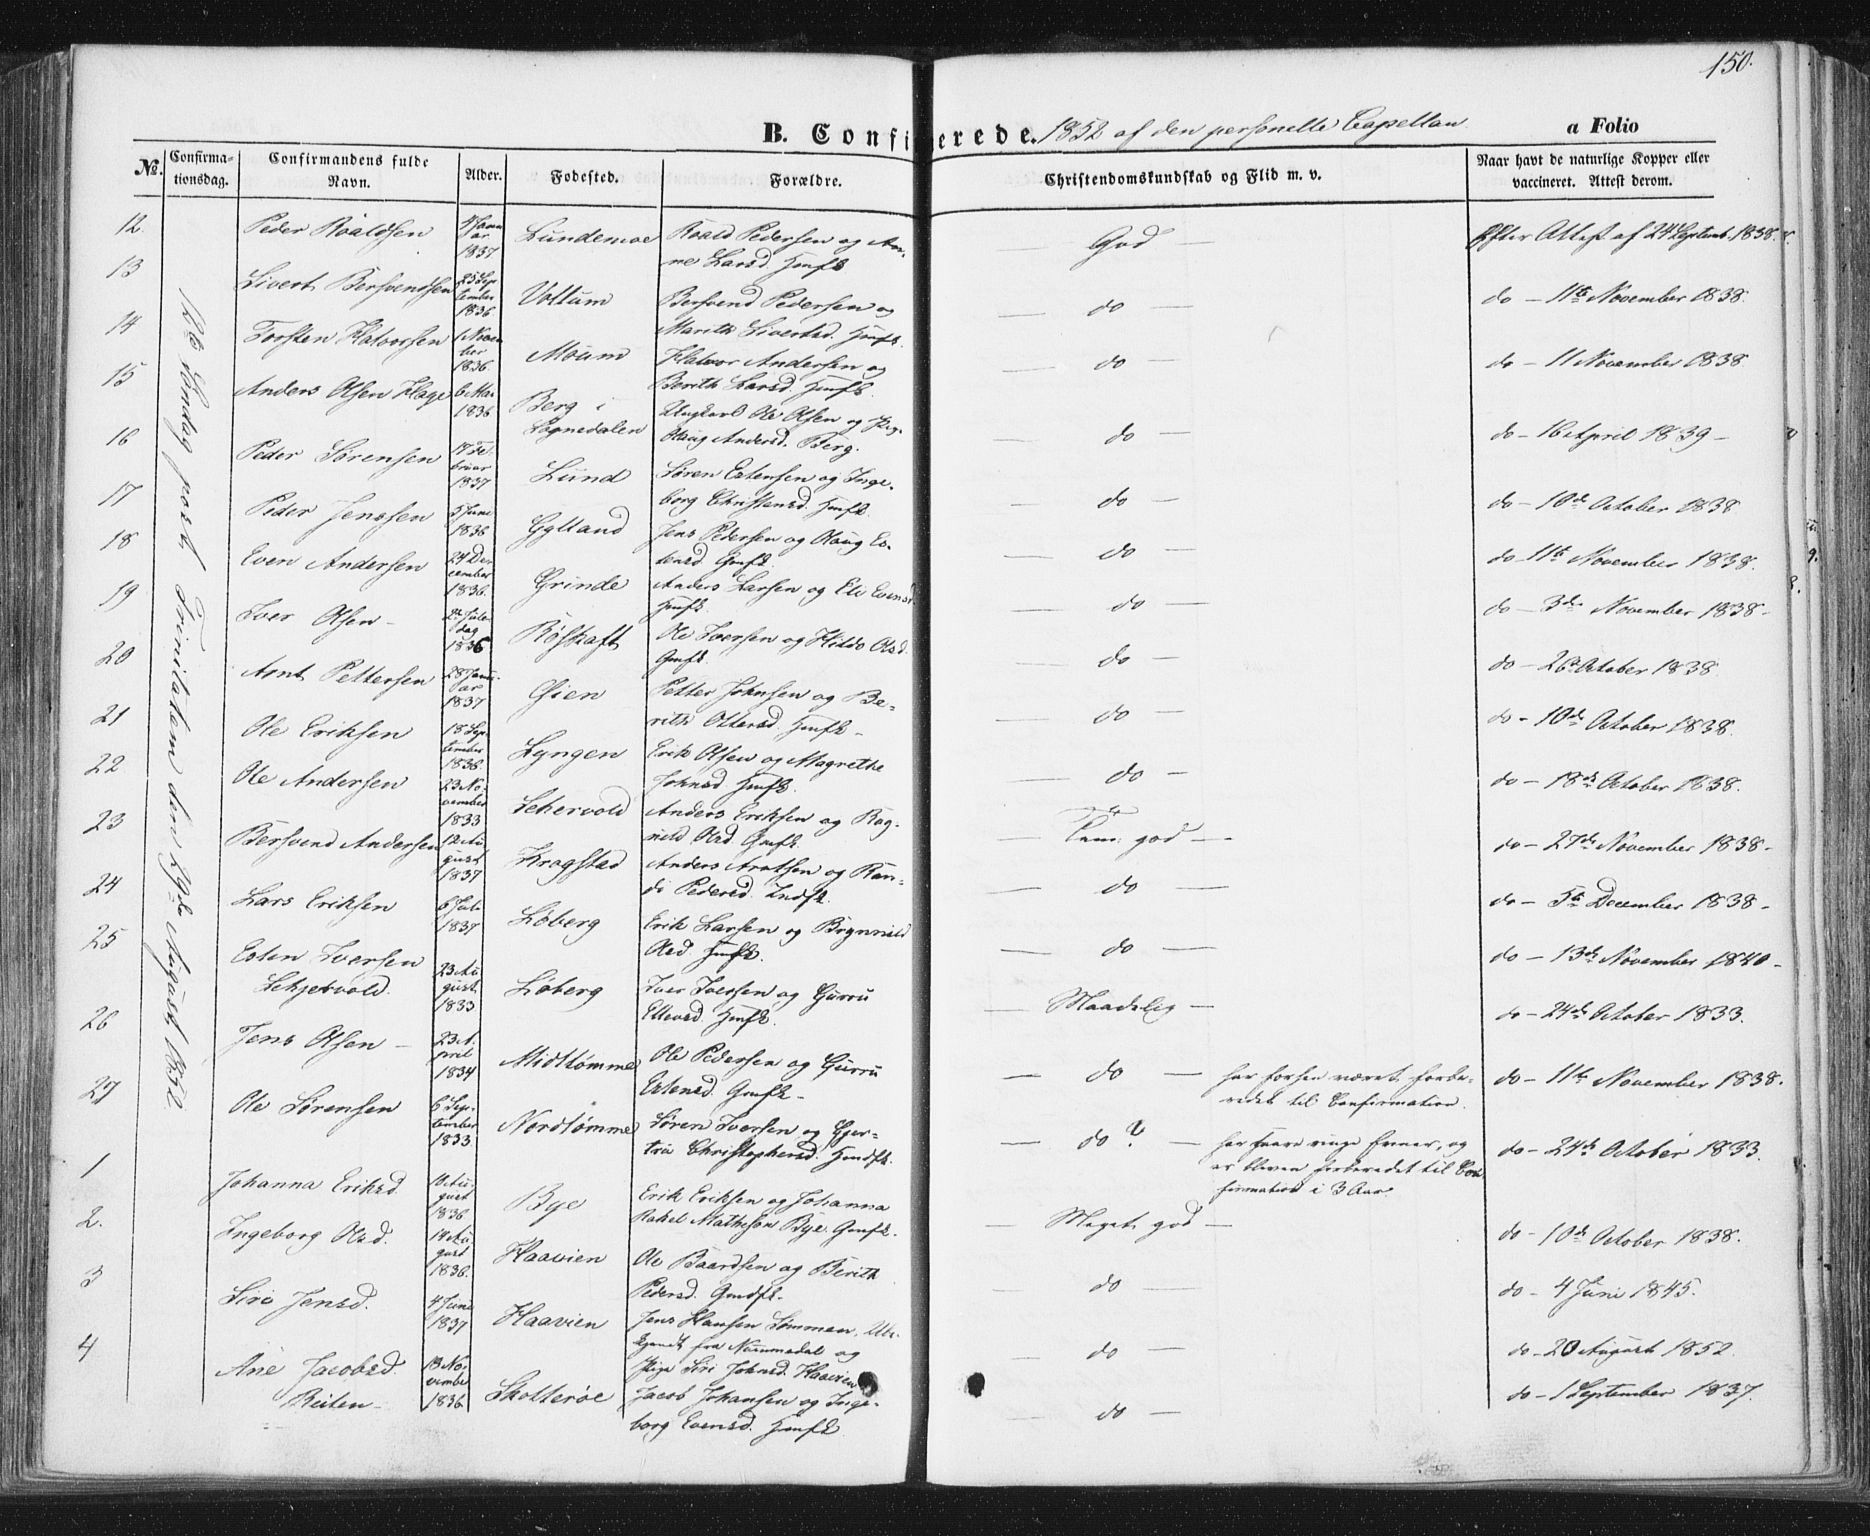 150.
B. Confirmerede. 1852 af den personelle Capellan
a Folio
No.
Confirma-
tionsdag.
Confirmandens fulde
Navn.
Alder.
Fødested.
Forældre.
Christendomskundskab og Flid m. v.
Naar havt de naturlige Kopper eller
vaccineret. Attest derom.
Søndag post Trinitatem den August 1852
12.
Peder Roaldsen
Januar
1837
Lundemoe
Roald Pedersen og An-
ne Larsd. Hmfk
— God —
Efter Attest af 24 Septemb. 1838.
13
Sivert Bersvendsen
25 Sep
tember
1836
Voltum
Bersvend Pedersen og
Marith Sivertsd. Hmfk.
— do —
do — 11te November 1838.
14
Torsten Halvorsen
1 Novem
ber
1836.
Moum
Halvor Andersen og
Berith Larsd. Hmfk.
— do —
do — 11 November 1838
15
Anders Olsen Hage
6 Mai
1836
Berg i
Sognedalen
Ungkarl Ole Olsen og Pig.
Olaug Andersd. Berg.
— do —
do — 16 April 1839 —
16
Peder Sørensen
17 Fe
bruar
1837
Lund
Søren Estensen og Inge-
borg Christensd. Hmfk.
— do —
do — 10de October 1838.
17
Peder Jenssen
5 Juni
1836
Gylland
Jens Pedersen og Olaug Es-
tensd. Gmfk.
— do —
do — 11te November 1838.
18
Even Andersen
24 De
cember
1836.
Grinde
Anders Larsen og Eli Evensd.
Hmfk.
— do —
do — 3de November 1838 —
19
Iver Olsen —
2 Jule
dag
1836
Røskaft
Ole Iversen og Hildo Olsd.
Gmfk.
— do —
do — 26 October 1838
20
Arnt Pettersen
28 Janu
ar
1837
Øien
Petter Johnsen og Be-
rith Ottersd. Hmfk —
— do —
do — 10de October 1838.
21
Ole Eriksen
18 Sep
tember
1836.
Lyngen
Erik Olsen og Magrethe
Johnsd. Hmfk.
— do —
do — 18de October 1838.
22
Ole Andersen
23 No
vember
1833
Schervold
Anders Eriksen og Rag-
nild Olsd. Gmfk.
— Tem. god —
do — 27de November 1838 —
23
Bersvend Andersen
12 Au
gust
1837
Kragstad
Anders Arntsen og Ran-
di Pedersd. Indfk.
— do —
do — 5te December 1838 —
24
Lars Eriksen
6 Juli
1837
Løberg
Erik Larsen og Brynnild
Olsd. Hmfk.
— do —
do — 13de November 1840 —
25
Esten Iversen
Schjervold.
23 Au
gust
1833
Løberg
Iver Iversen og Gurru
Ellevsd. Hmfk.
— Maadelig —
do — 24de October 1833.
26
Jens Olsen —
23 A
pril
1834
Midttømme
Ole Pedersen og Gurru
Estensd. Gmfk —
— do —
har forhen været forbe-
redet til Confirmation.
do — 11te November 1838.
27
Ole Sørensen
6 Sep-
tember
1833
Nordtømme
Søren Iversen og Gjer-
tru Christophersd. Hmdfk.
— do? —
har svare ringe Evner, og
er bleven forberedet til Con
firmation i 3 Aar.
do — 24de October 1833.
1
Johanna Eriksd.
Au
gust
1836
Bye
Erik Eriksen og Johanna
Rakel Matheson Bye. Gmfk.
— Meget god —
do — 10de October 1838.
2.
Ingeborg Olsd.
14 Au
gust
1836.
Haavien
Ole Baardsen og Berith
Pedersd. Gmdfk.
— do —
do — 4 Juni 1845.
3
Siri Jensd.
4 Juni
1837
Haavien
Jens Hansen Sømmen, Ub-
kjendt fra Nummedal og
Pige Siri Johnsd. Haavien
— do —
do — 20 August 1852.
4
Ane Jacobsd.
Reiten —
13 No
vembe
1836
Skotterøe
Jacob Johansen og Inge-
borg Evensd. Hmfk.
— do —
do — 1 September 1837.